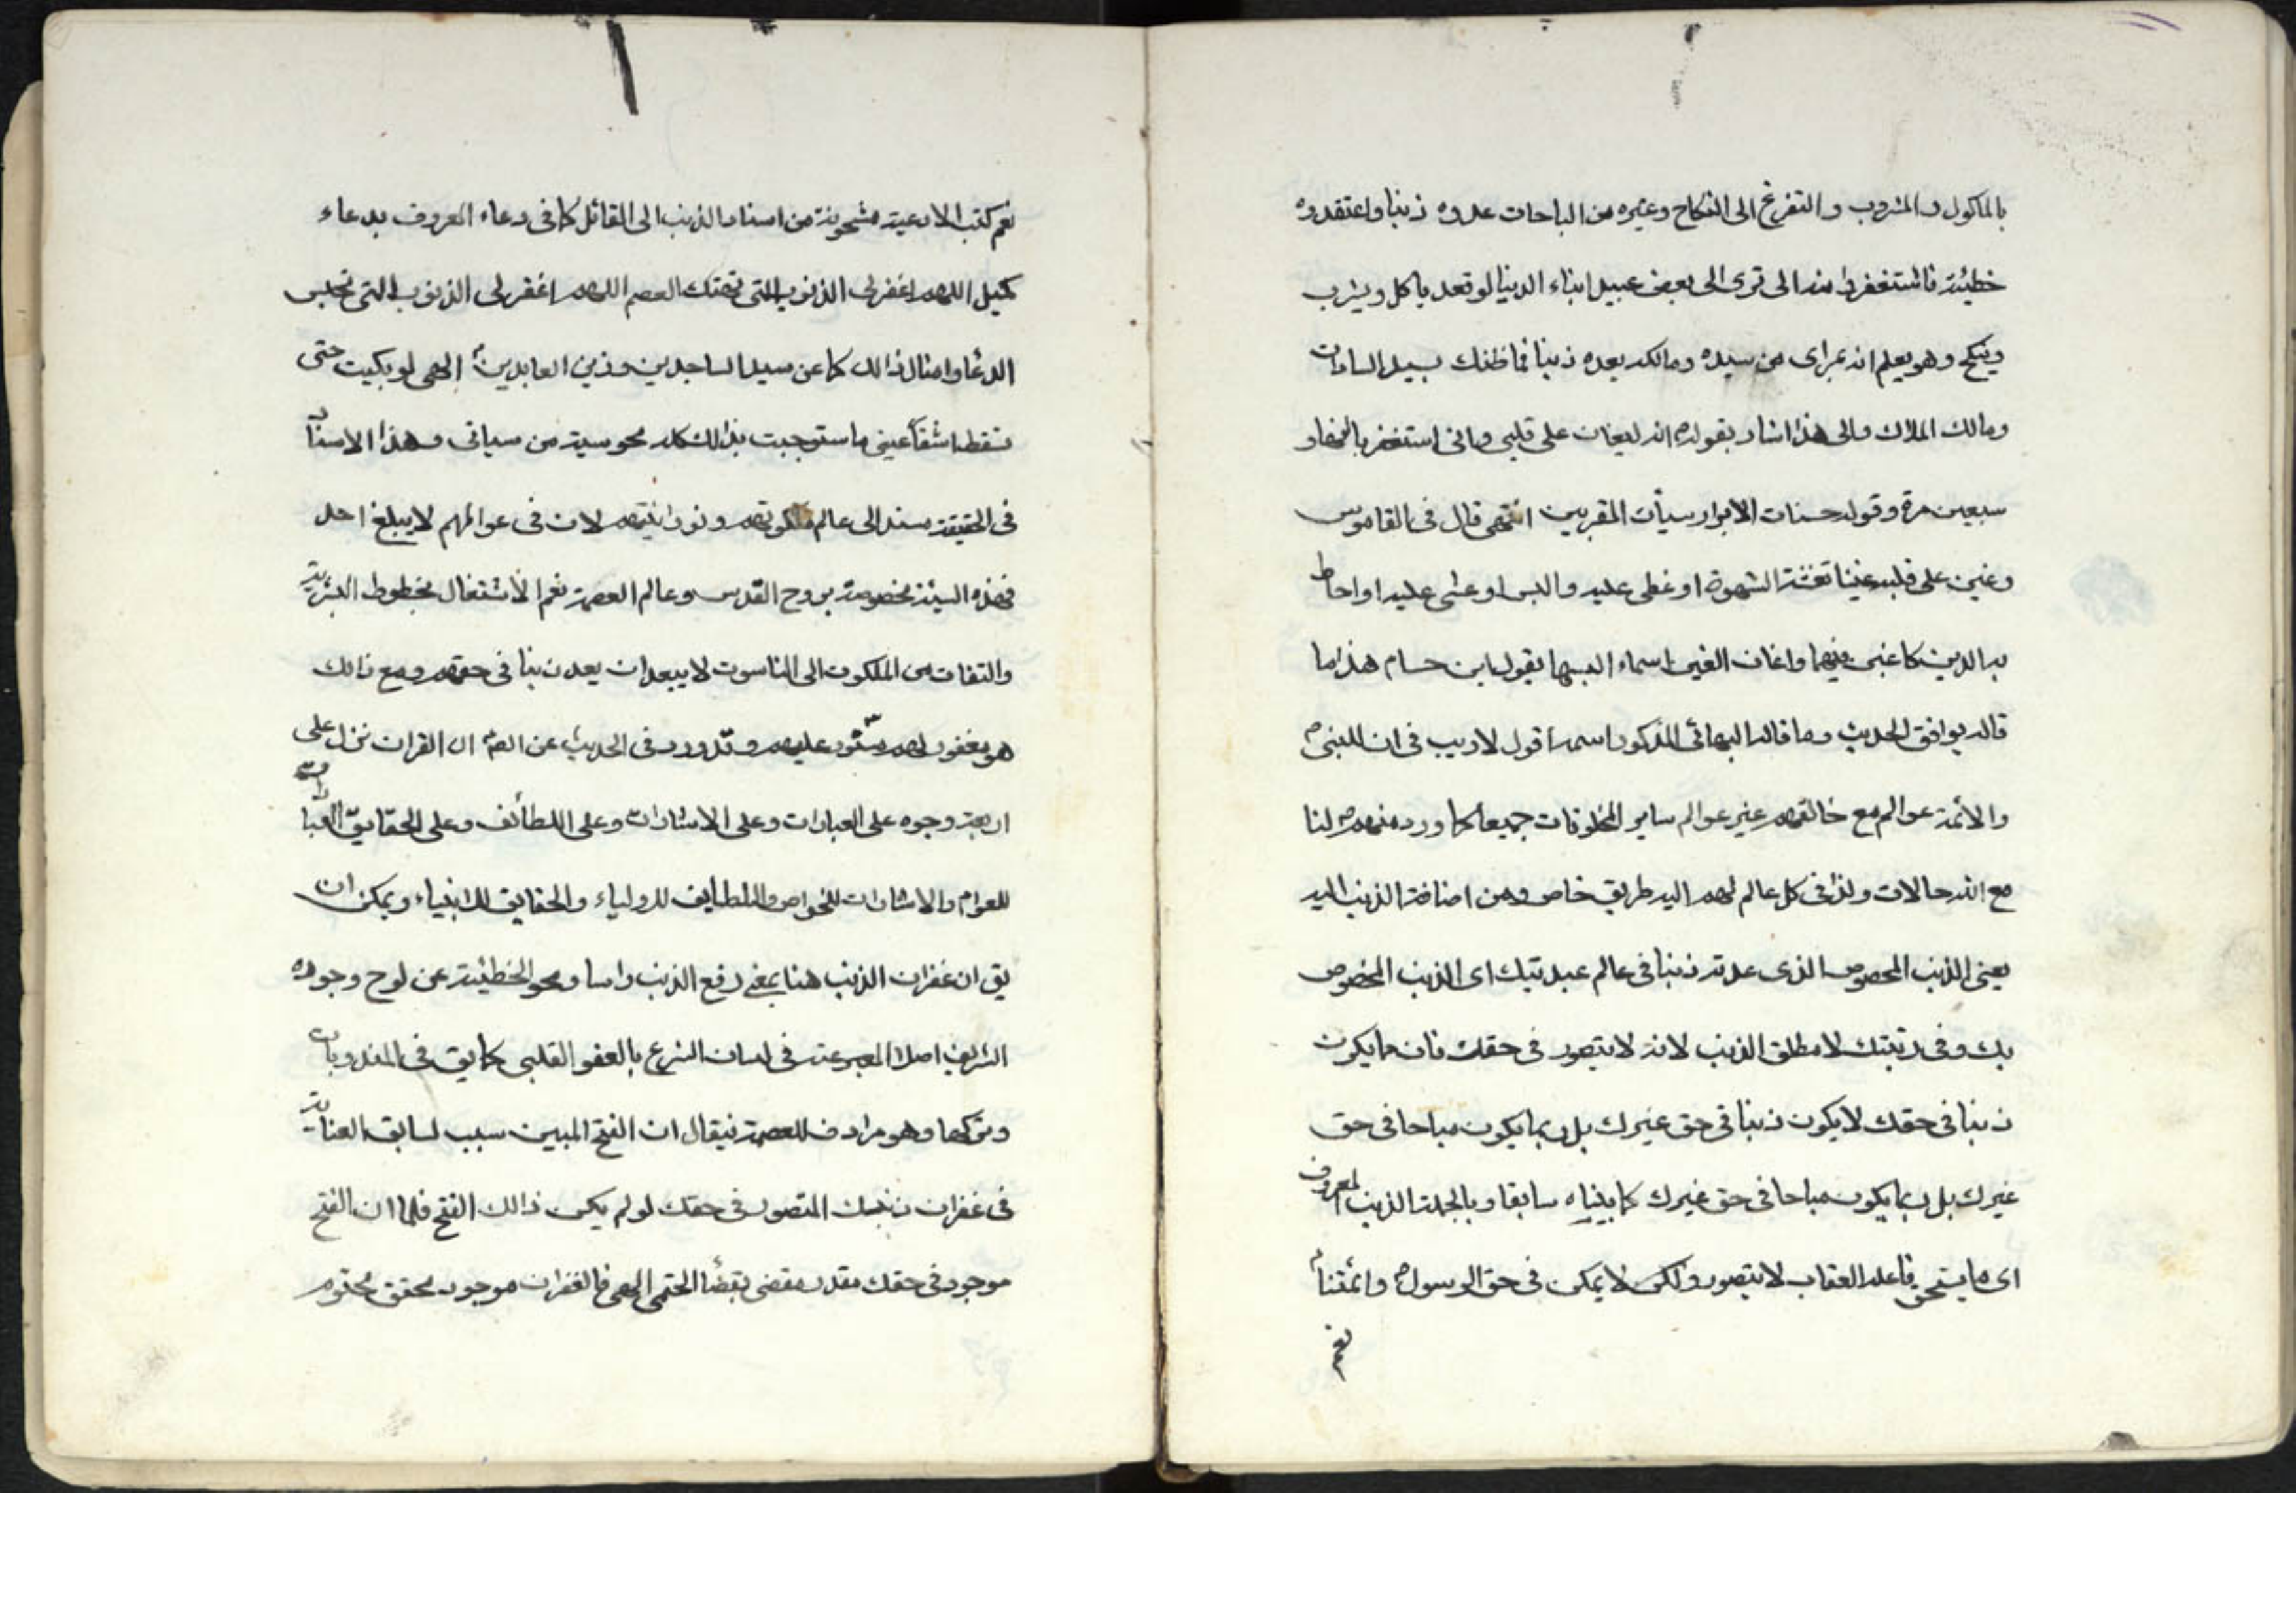 بالماكول و المشروب و التفرغ الى النكاح وغيره من المباحات عدوه ذنبا واعتقدوه
خطيئة فاستغفروا منه الى ترى الى بعض عبيد ابناء الدنيا لو قعد ياكل ويشرب
وينكح وهو يعلم انه بمراى من سيده ومالكه يعده ذنبا فما ظنك بسيد السادات
ومالك الملاك والى هذا اشار بقوله ص انه ليغان على قلبى وانى استغفر بالنهار
سبعين مرة وقوله حسنات الابرار سيأت المقربين انتهى قال فى القاموس
وغين على قلبه غينا تغشته الشهوة او غطى عليه والبس او غشى عليه او احاط
به الرين كاغين فيهما واغان الغين السماء البسها يقول ابن حسام هذا ما
قاله يوافق الحديث وما قاله البهائى المذكور اسمه اقول لا ريب فى ان للنبى ص
والائمة عوالم مع خالقهم غير عوالم ساير المخلوقات جميعا كما ورد منهم لنا
مع الله حالات ولذا فى كل عالم لهم اليه طريق خاص ومن اضافة الذنب اليه
يعنى الذنب المخصوص الذى عدته ذنبا فى عالم عبديتك اى الذنب المخصوص
بك وفى رتبتك لا مطلق الذنب لانه لا يتصور فى حقك فان ما يكون
ذنبا فى حقك لا يكون ذنبا فى حق غيرك بل ربما يكون مباحا فى حق
غيرك بل ربما يكون مباحا فى حق غيرك كما بيناه سابقا وبالجملة الذنب المعروف
اى ما يستحق فاعله العقاب لا يتصور ولكن لا يمكن فى حق الرسول ص وائمتنا
نعم
نعم كتب الادعية مشحونة من اسناد الذنب الى القائل كما فى دعاء المعروف بدعاء
كميل اللهم اغفر لى الذنوب التى تهتك العصم اللهم اغفر لى الذنوب التى تحبس
الدعا وامثال ذالك كما عن سيد الساجدين وزين العابدين الهى لو بكيت حتى
تسقط اشفا عينى ما ستوجبت بذالك كله محو سية من سياتى وهذا الاسنا
فى الحقيقة مسند الى عالم ملكوتهم ونورانيتهم لان فى عوالمهم لا يبلغ احد
فهذه السيئة مخصوصة بروح القدس وعالم العصمة نعم الاشتغال بحظوظ البشرية
والتفات من الملكوت الى الناسوت لا يبعد ان يعد ذنبا فى حقهم ومع ذالك
هو مغفور لهم مستور عليهم وقد ورد فى الحديث عن الص ان القران نزل على
اربعة وجوه على العبارات وعلى الاشارات وعلى اللطائف وعلى الحقايق العبارات
للعوام والاشارات للخواص واللطايف للاولياء والحقايق للانبياء ويمكن ان
يق ان غفران الذنب هنا بمعنى رفع الذنب راسا ومحو الخطيئة عن لوح وجوده
الشريف اصلا المعبر عنه فى لسان الشرع بالعفو القلبى كما يق فى المندوبات
وتركها وهو مرادف للعصمة فيقال ان الفتح المبين سبب لسابقه العناية
فى غفران ذنبك المتصور فى حقك لو لم يكن ذالك الفتح فلما ان الفتح
موجود فى حقك مقدر مقضى بقضا الحتمى الهى فالغفران موجود محقق محتوم